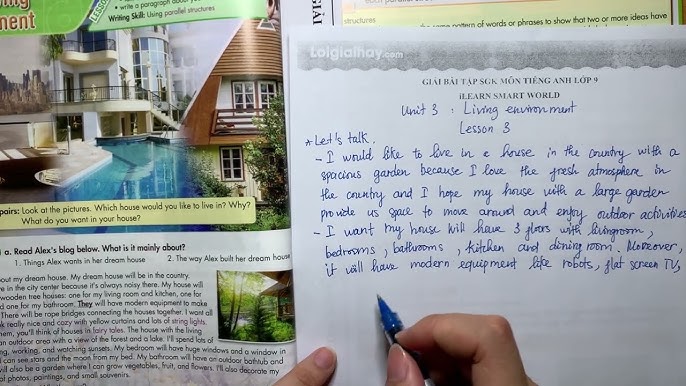 ing
nment
LESSON
• write a paragraph about yo
Writing Skill: Using parallel
structures
pairs: Look at the pictures. Which house would you like to live in? Why?
What do you want in your house?
a. Read Alex's blog below. What is it mainly about?
1. Things Alex wants in her dream house
2. The way Alex built her dream
bout my dream house. My dream house will be in the country.
e in the city center because it's always noisy there. My house will
wooden tree houses: one for my living room and kitchen, one for
d one for my bathroom. They will have modern equipment to make
There will be rope bridges connecting the houses together. I want all
k really nice and cozy with yellow curtains and lots of string lights.
them, you'll think of houses in fairy tales. The house with the living
an outdoor area with a view of the forest and a lake. I'll spend lots of
ing, working, and watching sunsets. My bedroom will have huge windows and a window in
I can see stars and the moon from my bed. My bathroom will have an outdoor bathtub and
will also be a garden where I can grow vegetables, fruit, and flowers. I'll also decorate my
of photos, paintings, and small souvenirs.
GIẢI
structures
e same pattern of words or phrases to show that two or more ideas have
Loigiaihay.com
GIẢI BÀI TẬP SGK MÔN TIẾNG ANH LỚP 9
iLEARN SMART WORLD
Unit 3 : Living environment
Lesson 3
* Let's talk.
- I would like to live in a house in the country with a
spacious garden because I love the fresh atmosphere in
the country and I hope my house with a large garden
provide us space to move around and enjoy outdoor activities
- I want my house will have 3 floors with livingroom,
bedrooms, bathrooms, kitchen and dining room. Moreover,
it will have modern equipment like robots, flat screen TV,